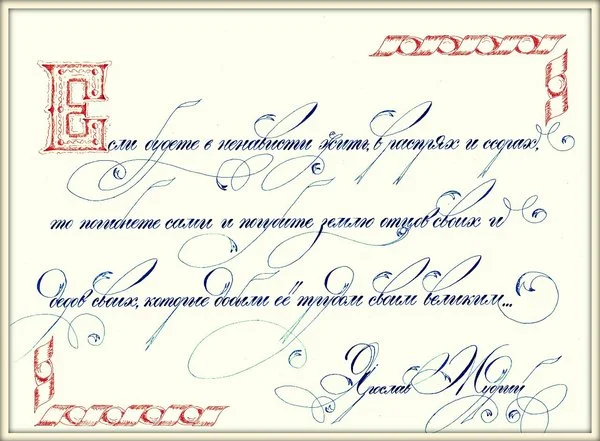 Если будете в ненависти жить, в распрях и ссорах,
то погибнете сами и погубите землю отцов своих и
дедов своих, которые добыли её трудом своим великим...
Ярослав Мудрый